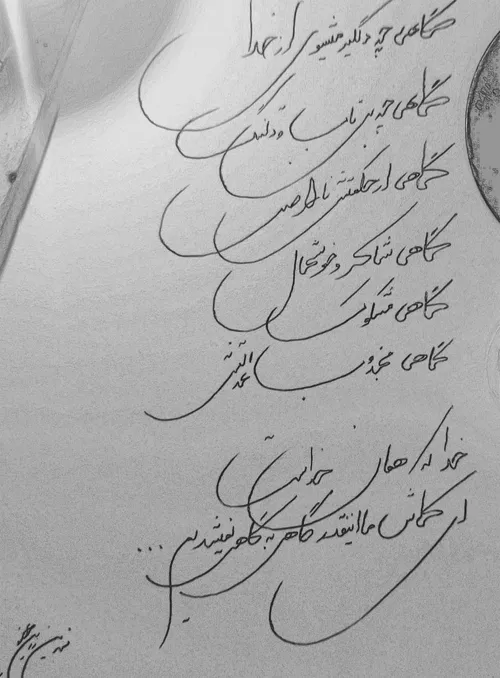 گاهی چه دلگیر میشوی از خدا
گاهی چه بی تاب و دلتنگ
گاهی از حکمتش ناراضی
گاهی شاکر و خوشحال
گاهی مشکوک
گاهی مجذوب
خدا که همان خداست
ای کاش ما اینقدر گاهی به گاهی نمیشدیم ...